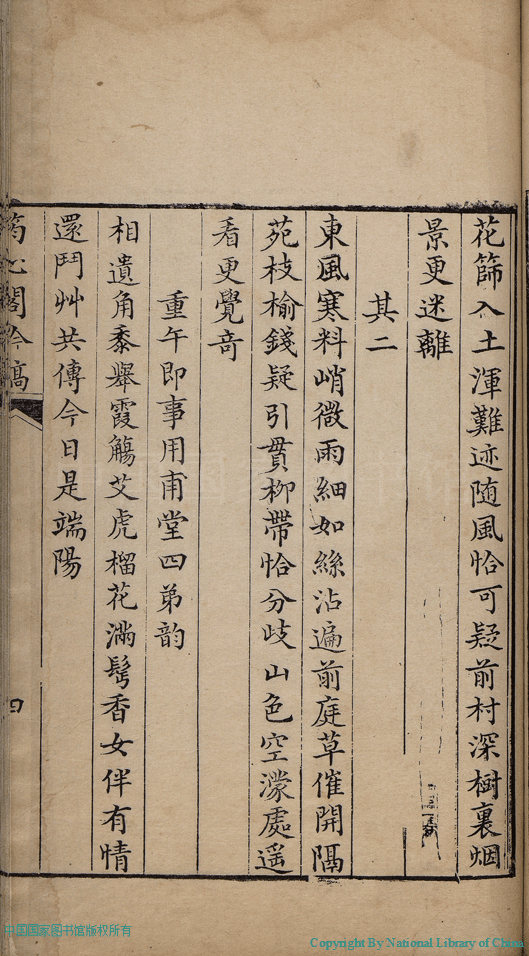 花篩入土渾難迹随風恰可疑前村深樹裏烟
景更迷離
其二
東風寒料峭微雨細如絲沾遍前庭草催開隔
苑枝榆錢疑引貫柳帶恰分歧山色空濛處遥
看更覺奇
重午即事用甫堂四弟韵
相遺角黍舉霞觴艾虎榴花滿鬂香女伴有情
還鬥艸共傳今日是端陽
筠心閣吟稿
四
国国家图书馆版权所有
Copyright By National Library of China